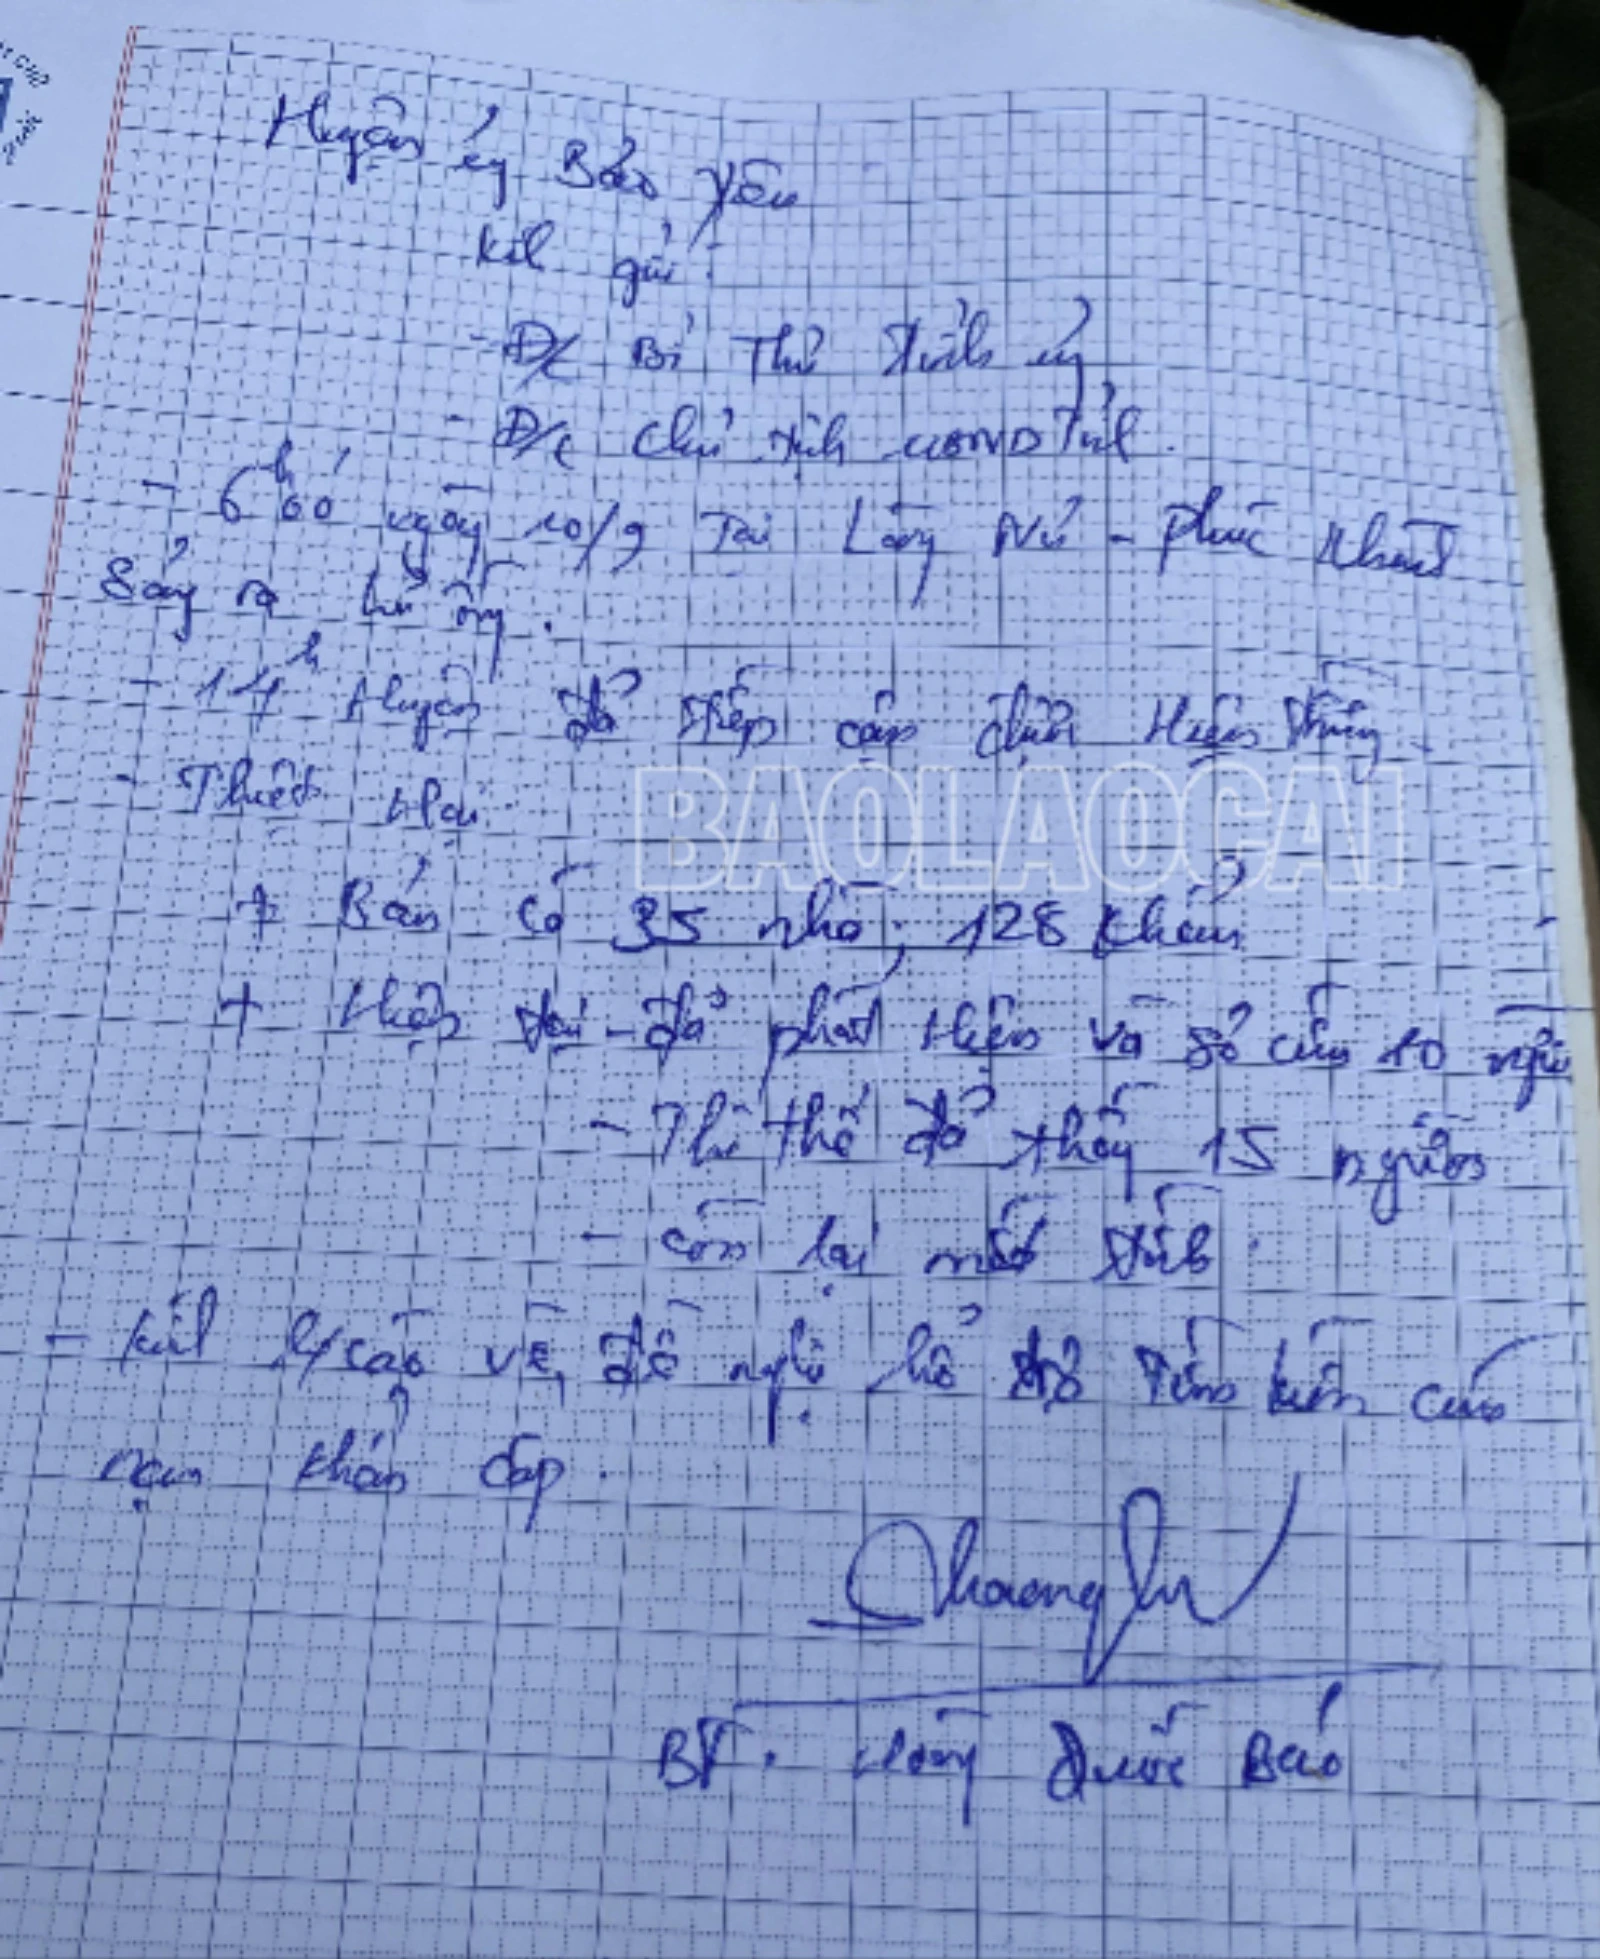 Huyện ủy Bảo Yên
Kính gửi:
- Đ/c Bí Thư Tỉnh ủy
- Đ/c Chủ tịch UBND Tỉnh.
- 6h00 ngày 10/9 Tại Làng Nủ - Phúc Khánh
Sảy ra lũ ống.
- 14h Huyện đã tiếp cận được Hiện trường
- Thiệt Hại:
+ Bản có 35 nhà; 128 khẩu
+ Hiện tại - đã phát hiện và sơ cứu 10 người
- Thi thể đã thấy 15 người
- còn lại mất tích.
- Kính B/cáo về, đề nghị hỗ trợ Tìm kiếm cứu
nạn khẩn cấp.
BT. Hoàng Quốc Bảo
BAOLAOCAI